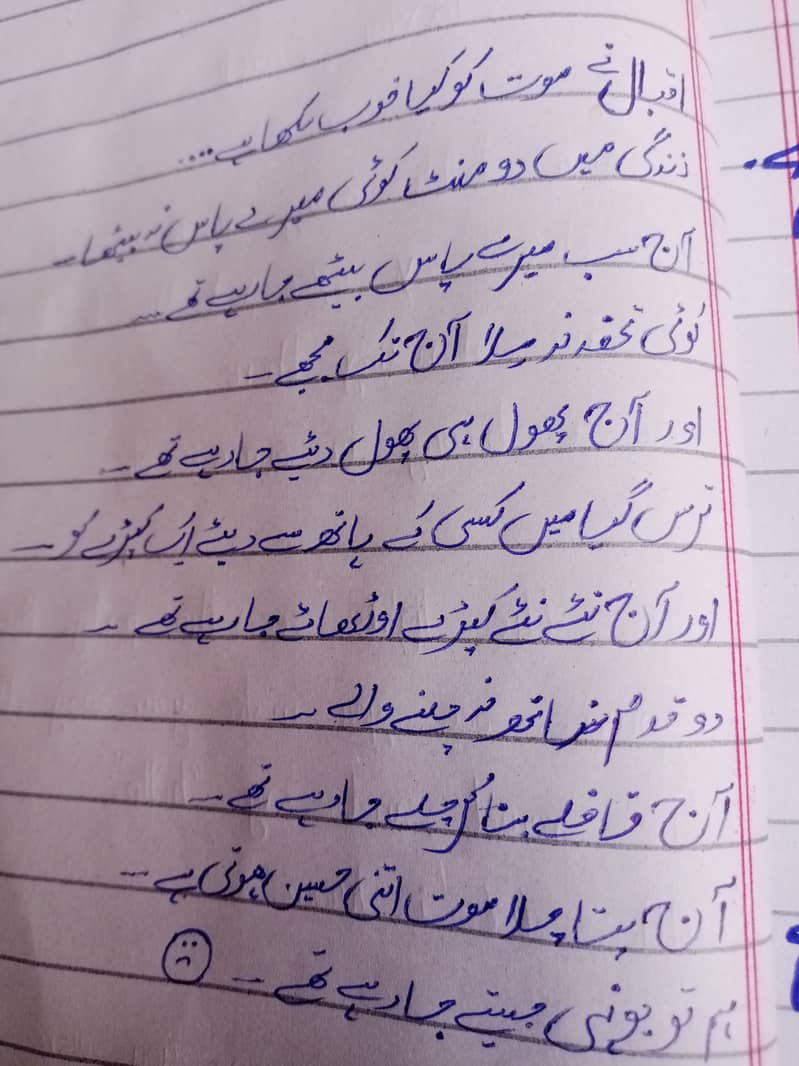 اقبال نے موت کو کیا خوب لکھا ہے....
زندگی میں دو منٹ کوئی میرے پاس نہ بیٹھا۔۔
آج سب میرے پاس بیٹھے جا رہے تھے۔۔
کوئی تحفہ نہ ملا آج تک مجھے۔۔
اور آج پھول ہی پھول دئیے جا رہے تھے۔۔
ترس گیا میں کسی کے ہاتھ سے دیئے اک کپڑے کو۔۔
اور آج نئے نئے کپڑے اوڑھائے جا رہے تھے۔۔
دو قدم ساتھ نہ چلنے والے۔۔
آج قافلے بنا کر چلے جا رہے تھے۔۔
آج پتا چلا موت اتنی حسین ہوتی ہے۔۔
ہم تو یونہی جیتے جا رہے تھے۔۔